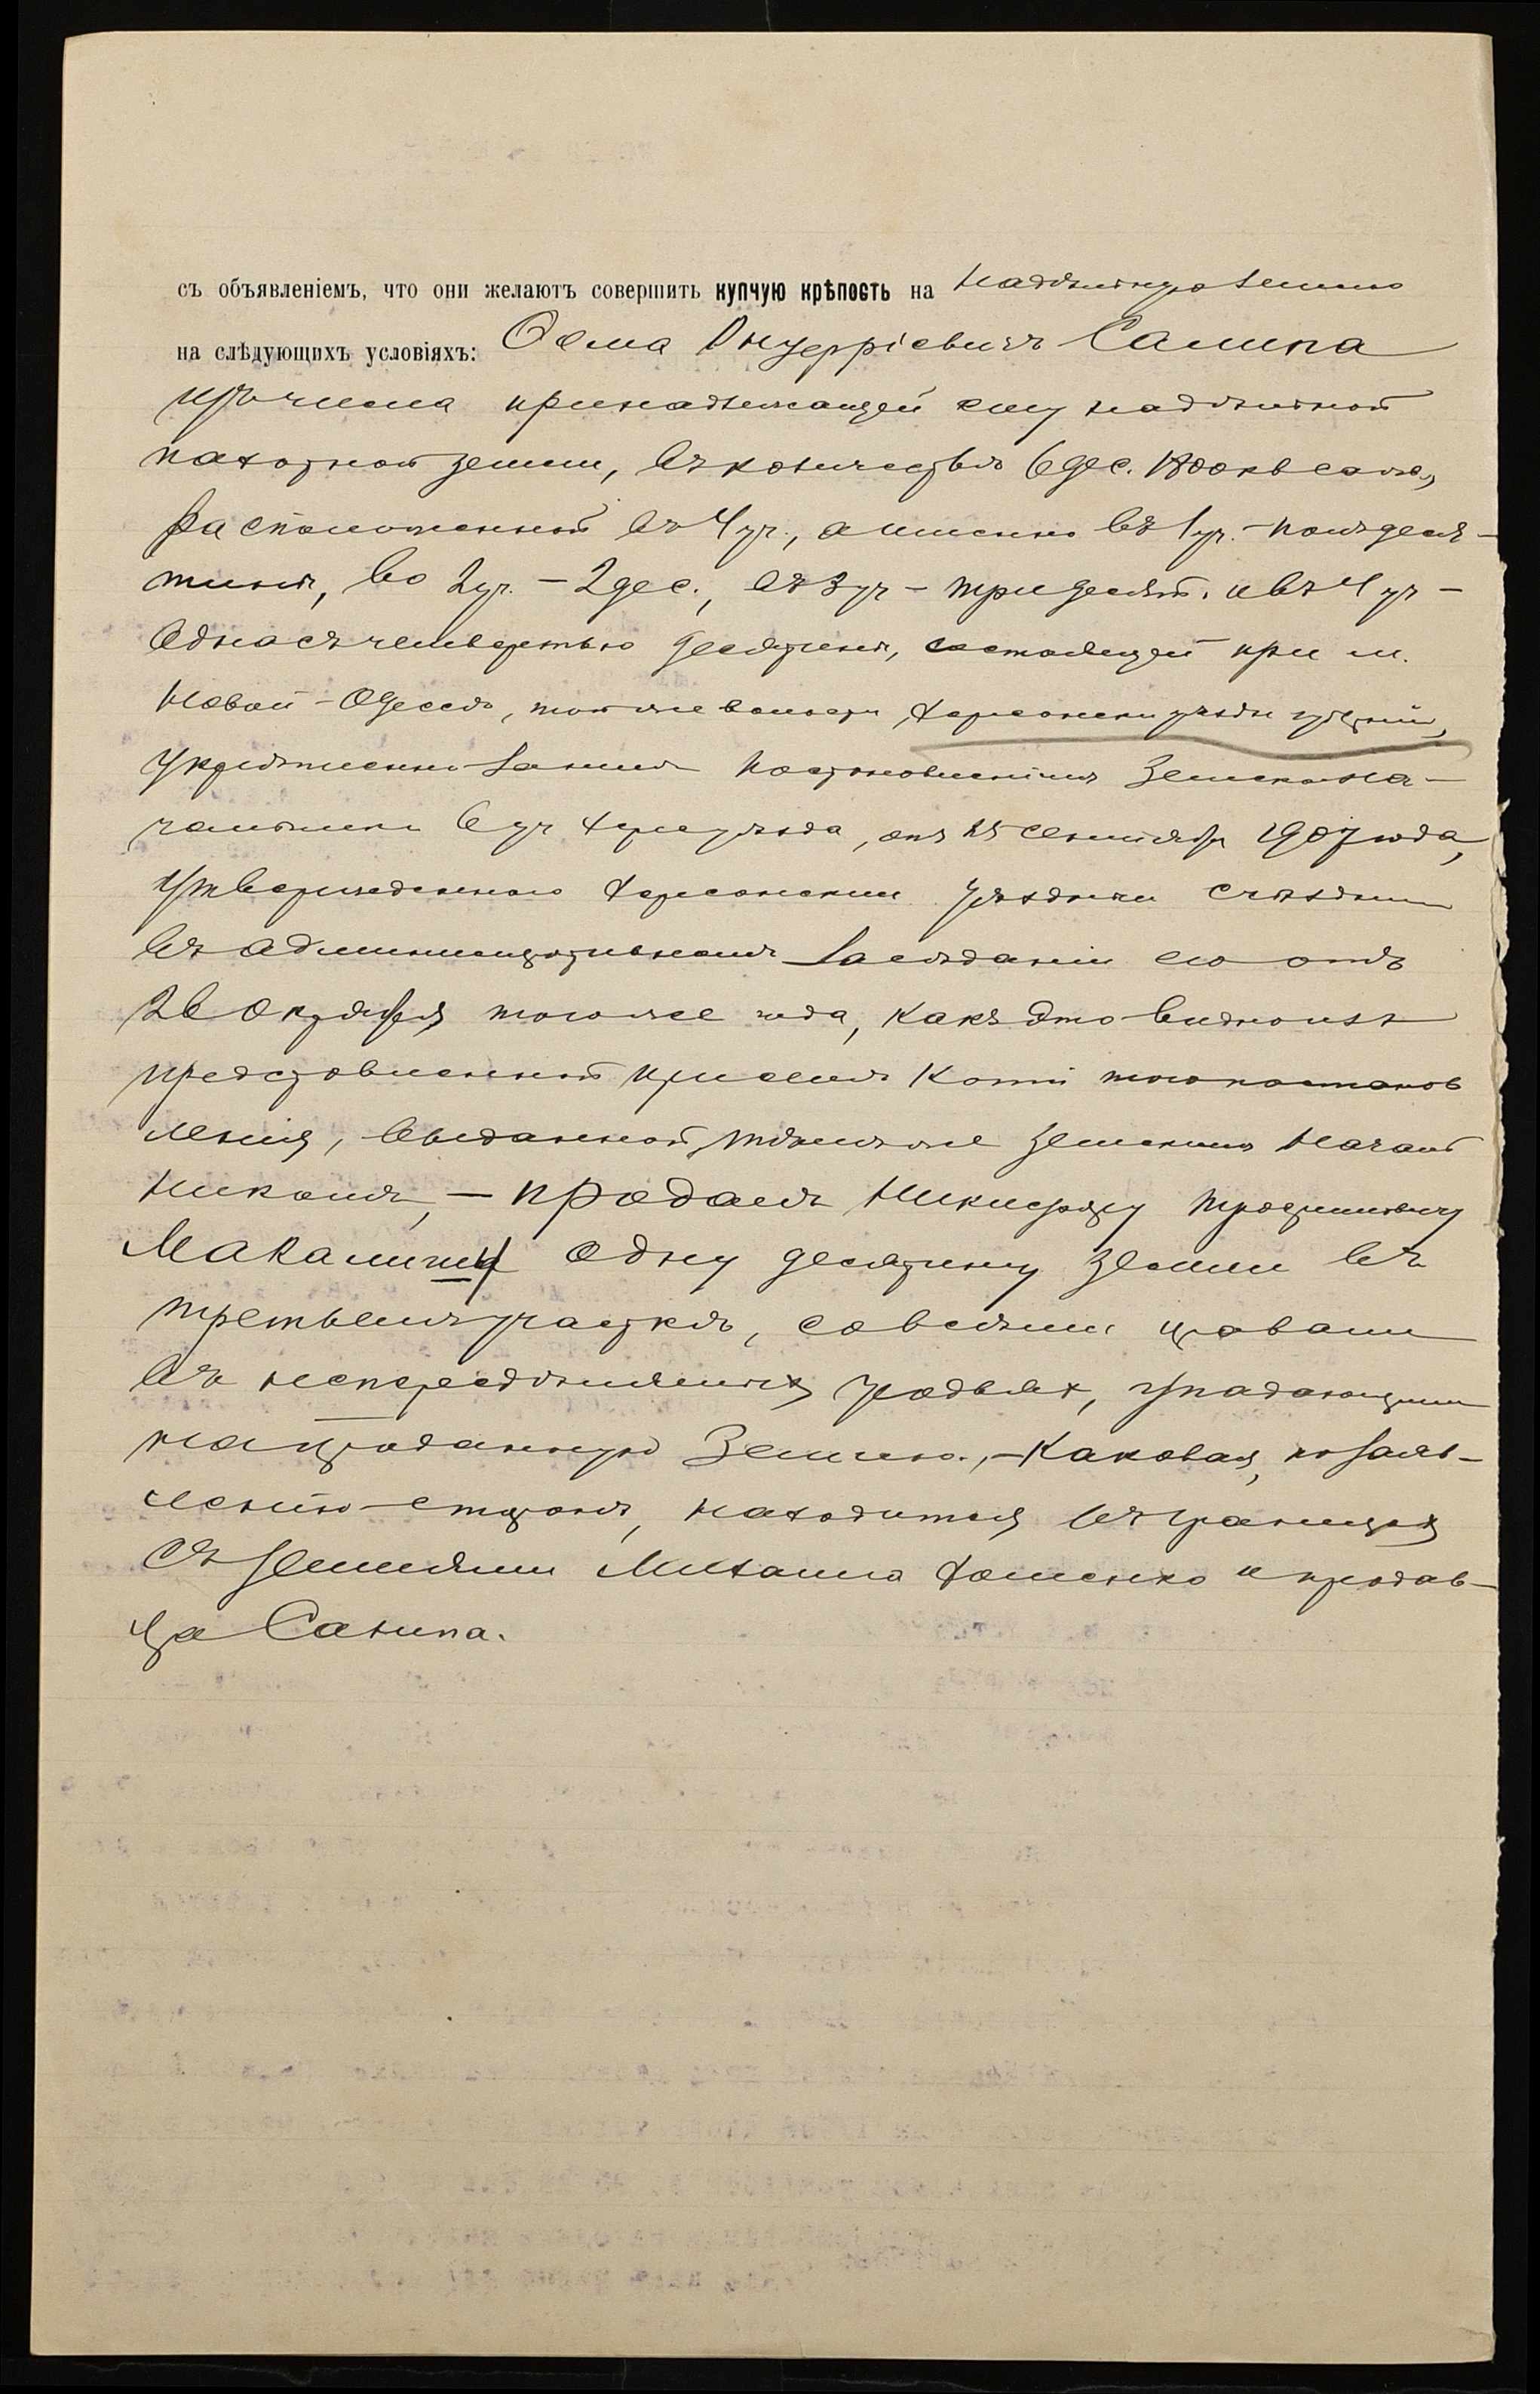 съ объявленіемъ, что они желаютъ совершить купчую крѣпость на надѣльную землю
на слѣдующихъ условіяхъ: Ѳома Онуфріевичъ Салипа
изъ числа принадлежащей ему надѣльной
пахотной земли, въ количествѣ 6 дес. 1800 кв саж.,
расположенной въ 4 уч., а именно въ 1 уч. - полъ деся-
тины, во 2 уч. - 2 дес., въ 3 уч - три десят. и въ 4 уч -
одна съ четвертью десятины, состоящей при м.
Новой-Одессѣ, той же волости, Херсонск уѣзда и губерніи,
укрѣпленной за нимъ постановленіемъ Земскаго На-
чальника 6 уч Херс уѣзда, отъ 25 сентября 1907 года,
утвержденнаго Херсонскимъ уѣзднымъ съѣздомъ
въ административномъ засѣданіи его отъ
26 октября того же года, какъ это видно изъ
представленной при семъ копіи того постанов
ленія, выданной тѣмъ же Земскимъ Началь
никомъ, - продалъ Никифору Трофимовичу
одну десятину земли въ
третьемъ участкѣ, со всѣми правами
въ непередѣляемыхъ угодьяхъ, упадающими
на проданную землю., - каковая, по заяв-
ленію сторонъ, находится въ границахъ
съ землями Михаила Фоменко и продав-
ца Салипа.